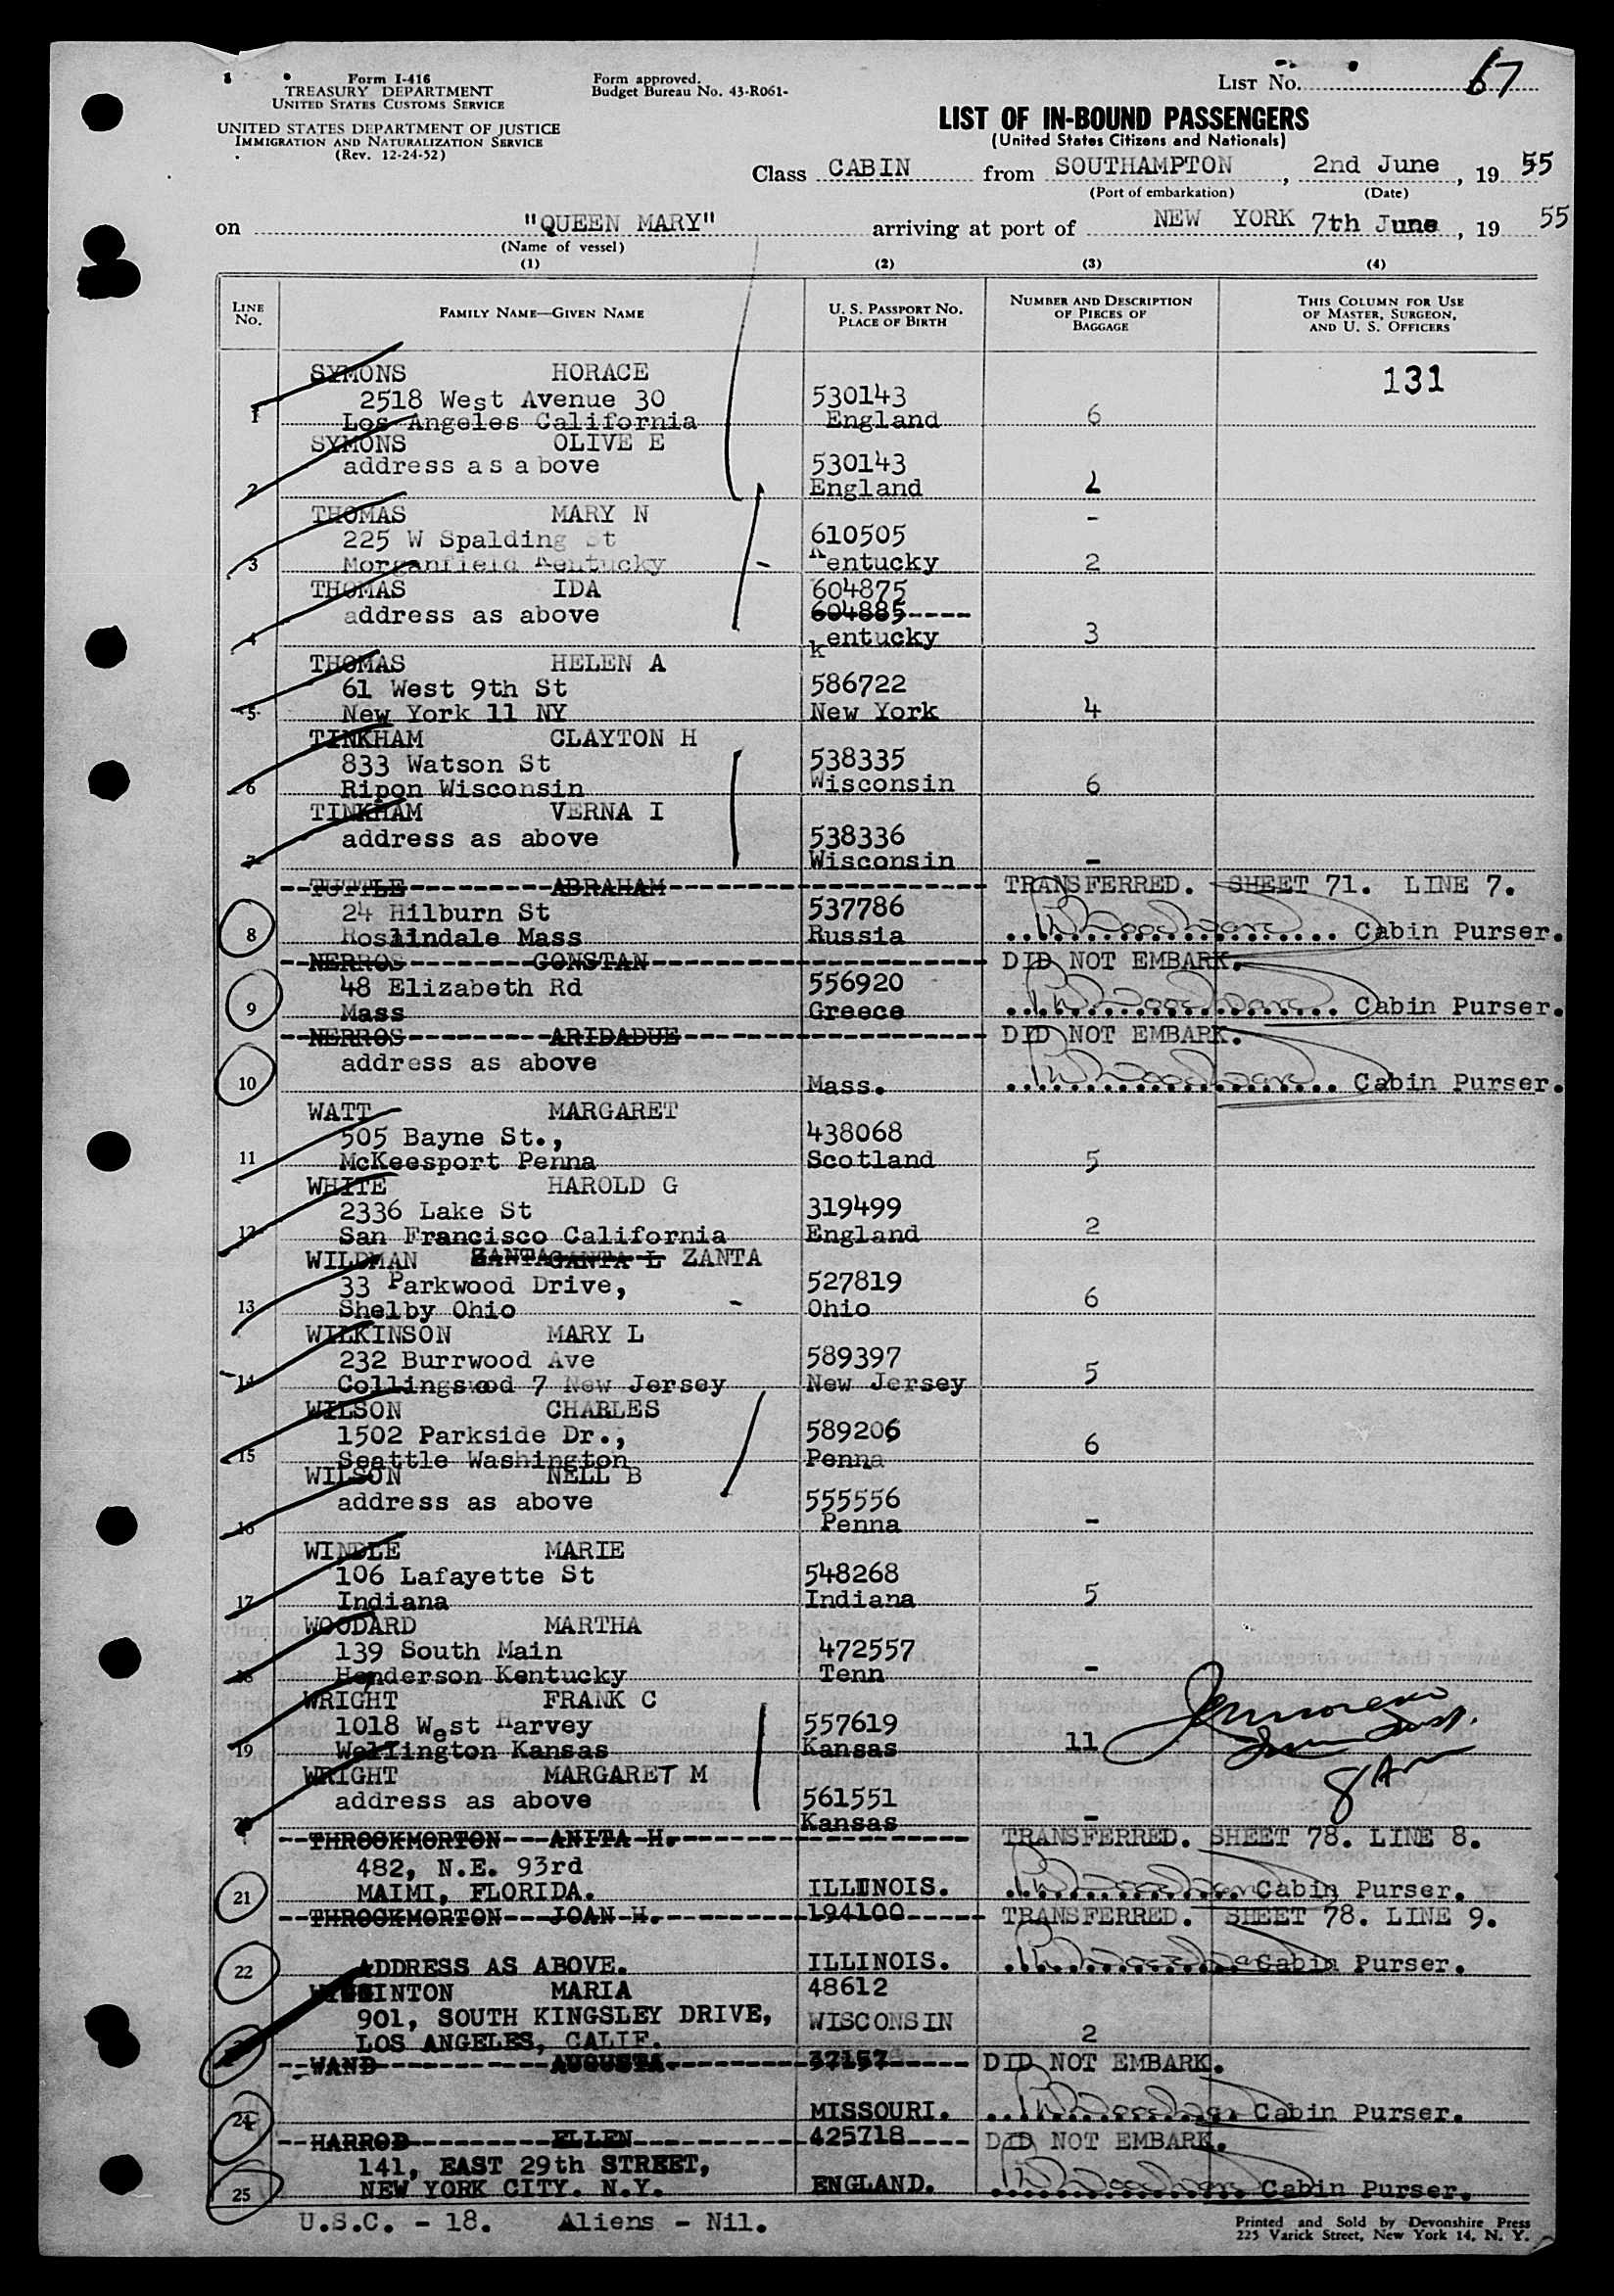 Form I-416
TREASURY DEPARTMENT
UNITED STATES CUSTOMS SERVICE
UNITED STATES DEPARTMENT OF JUSTICE
IMMIGRATION AND NATURALIZATION SERVICE
(Rev. 12-24-52)
Form approved.
Budget Bureau No. 43-R061-
LIST No. 67
LIST OF IN-BOUND PASSENGERS
(United States Citizens and Nationals)
Class CABIN from SOUTHAMPTON, 2nd June, 19 55
(Port of embarkation) (Date)
on "QUEEN MARY" arriving at port of NEW YORK 7th June, 19 55
(Name of vessel)
(1) (2) (3) (4)
LINE No. FAMILY NAME—GIVEN NAME U. S. PASSPORT No. PLACE OF BIRTH NUMBER AND DESCRIPTION OF PIECES OF BAGGAGE THIS COLUMN FOR USE OF MASTER, SURGEON, AND U. S. OFFICERS
SYMONS HORACE 131
2518 West Avenue 30 530143
1 Los Angeles California England 6
SYMONS OLIVE E
address as above 530143
2 England
THOMAS MARY N -
225 W Spalding St 610505
3 Morganfield Kentucky - Kentucky 2
THOMAS IDA 604875
address as above 604885----
4 kentucky 3
THOMAS HELEN A
61 West 9th St 586722
5 New York 11 NY New York 4
TINKHAM CLAYTON H
833 Watson St 538335
6 Ripon Wisconsin Wisconsin 6
TINKHAM VERNA I
address as above 538336
7 Wisconsin -
TUTTLE ABRAHAM TRANSFERRED. SHEET 71. LINE 7.
24 Hilburn St 537786
8 Roslindale Mass Russia Cabin Purser.
NERROS CONSTAN DID NOT EMBARK.
48 Elizabeth Rd 556920
9 Mass Greece Cabin Purser.
NERROS ARIDADUE DID NOT EMBARK.
address as above
10 Mass. Cabin Purser.
WATT MARGARET
505 Bayne St., 438068
11 McKeesport Penna Scotland 5
WHITE HAROLD G
2336 Lake St 319499
12 San Francisco California England 2
WILDMAN ZANTA
33 Parkwood Drive, 527819
13 Shelby Ohio - Ohio 6
WILKINSON MARY L
232 Burrwood Ave 589397
14 Collingswood 7 New Jersey New Jersey 5
WILSON CHARLES
1502 Parkside Dr., 589206
15 Seattle Washington Penna 6
WILSON NELL B
address as above 555556
16 Penna -
WINDLE MARIE
106 Lafayette St 548268
17 Indiana Indiana 5
WOODARD MARTHA
139 South Main 472557
18 Henderson Kentucky Tenn -
WRIGHT FRANK C
1018 West Harvey 557619
19 Wellington Kansas Kansas 11
WRIGHT MARGARET M 8 AM
address as above 561551
20 Kansas -
THROCKMORTON ANITA H. TRANSFERRED. SHEET 78. LINE 8.
482, N.E. 93rd
21 MAIMI, FLORIDA. ILLINOIS. Cabin Purser.
THROCKMORTON JOAN H. 194100 TRANSFERRED. SHEET 78. LINE 9.
22 ADDRESS AS ABOVE. ILLINOIS. Cabin Purser.
WIGGINTON MARIA 48612
901, SOUTH KINGSLEY DRIVE, WISCONSIN
LOS ANGELES, CALIF. 2
WAND AUGUSTA. 37157 DID NOT EMBARK.
24 MISSOURI. Cabin Purser.
HARROD ELLEN 425718 DID NOT EMBARK.
141, EAST 29th STREET,
25 NEW YORK CITY. N.Y. ENGLAND. Cabin Purser.
U.S.C. - 18. Aliens - Nil.
Printed and Sold by Devonshire Press
225 Varick Street, New York 14, N. Y.